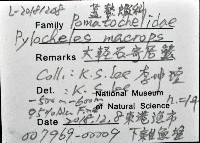 L-20181208 藍
Family Pomatochelidae
Pylocheles macrops
Remarks 大輕石寄居蟹
Coll: K.S. Lee 李坤瑄
Det.: K.S. Lee
National Museum
of Natural Science
-500m~600m
95% Alc. n=14
Date 2018.12.8 東港漁市
007969-00009 下雜魚堆